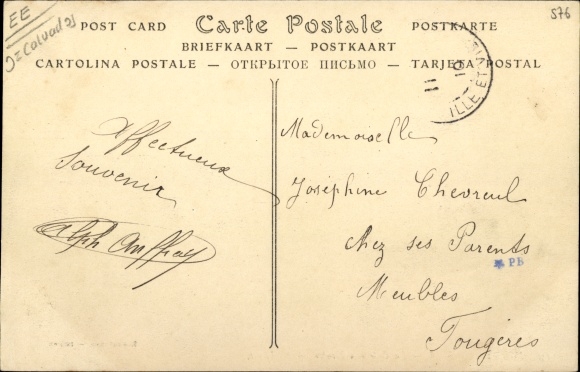 EE
576
POST CARD Carte Postale POSTKARTE
BRIEFKAART — POSTKAART
CARTOLINA POSTALE — ОТКРЫТОЕ ПИСЬМО — TARJETA POSTAL
ILLE ET
Affectueux
Souvenir
Alph Auffray
Mademoiselle
Joséphine Chevreul
chez ses Parents
PB
Meubles
Fougères